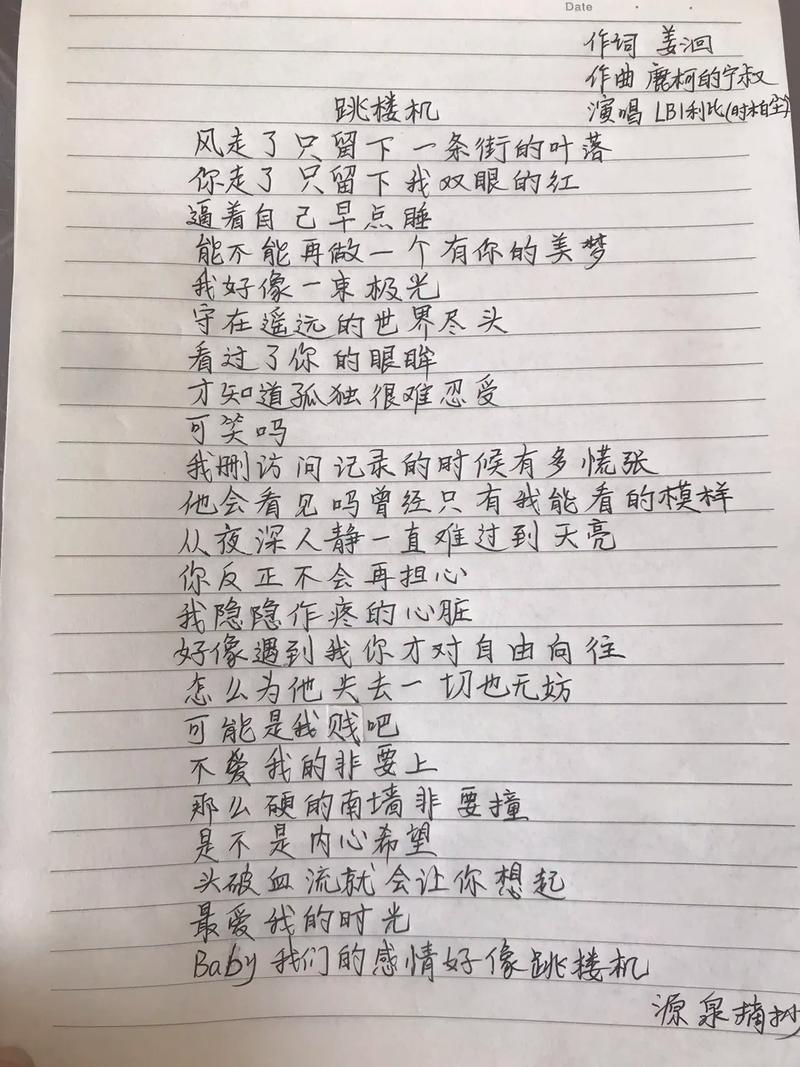 Date
作词 姜洄
作曲 鹿柯的宁叔
跳楼机
演唱 LBI利比(时柏尘)
风走了只留下一条街的叶落
你走了只留下我双眼的红
逼着自己早点睡
能不能再做一个有你的美梦
我好像一束极光
守在遥远的世界尽头
看过了你的眼眸
才知道孤独很难忍受
可笑吗
我删访问记录的时候有多慌张
他会看见吗曾经只有我能看的模样
从夜深人静一直难过到天亮
你反正不会再担心
我隐隐作疼的心脏
好像遇到我你才对自由向往
怎么为他失去一切也无妨
可能是我贱吧
不爱我的非要上
那么硬的南墙非要撞
是不是内心希望
头破血流就会让你想起
最爱我的时光
Baby我们的感情好像跳楼机
源泉摘抄